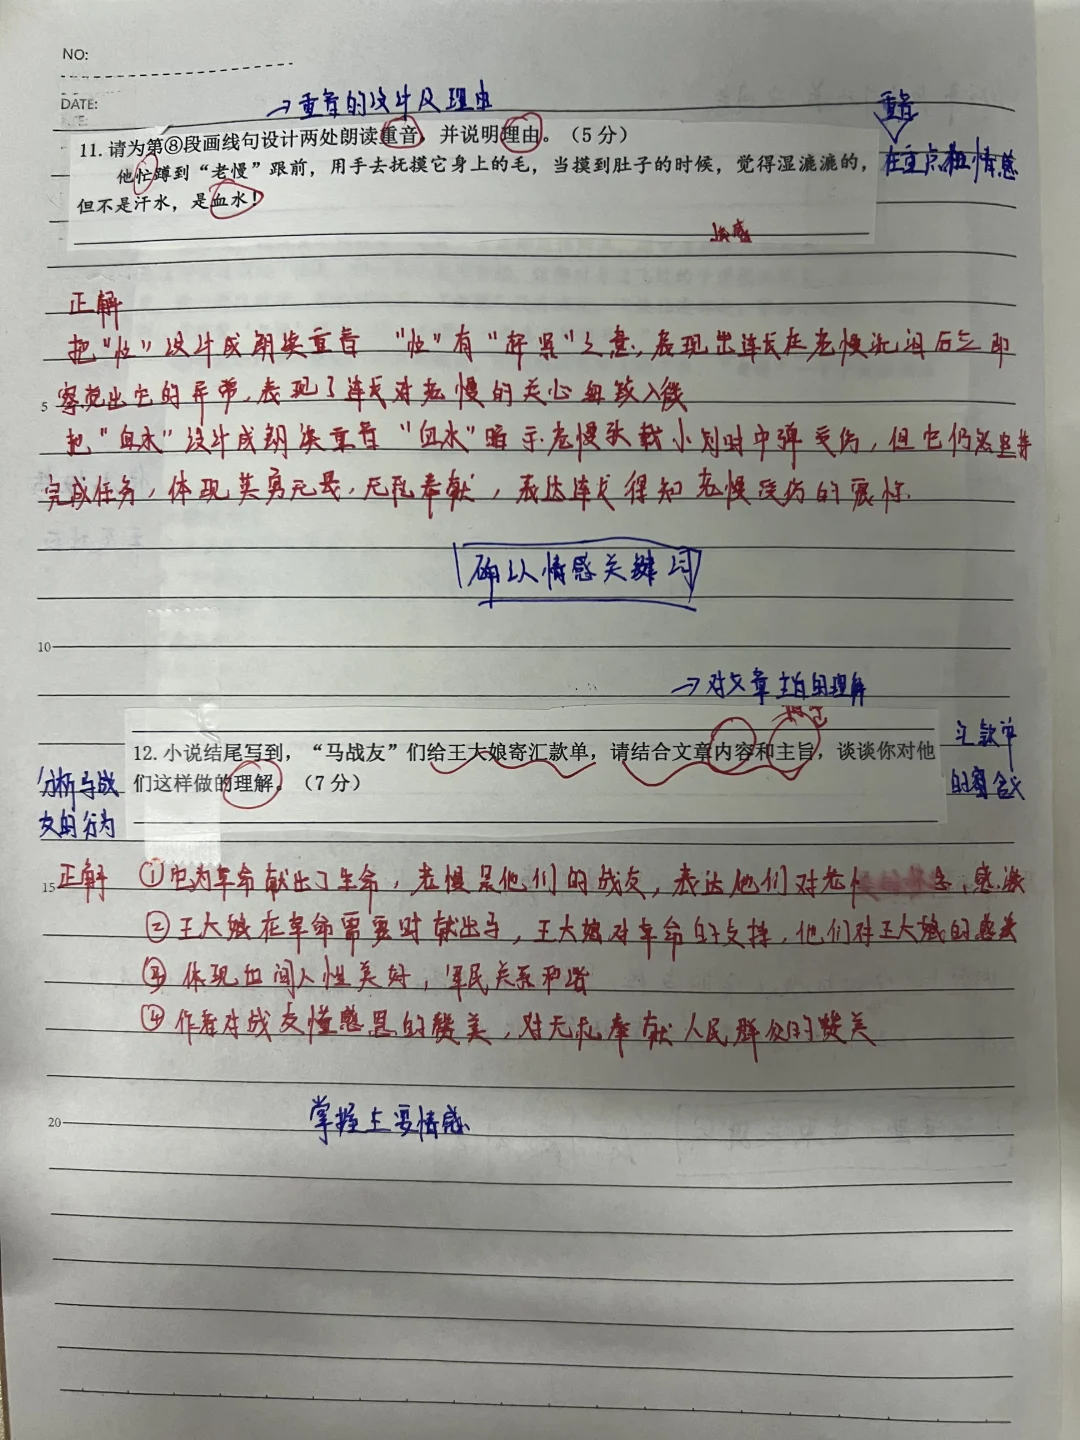 NO:
DATE:
→重音的设计及理由
重音
11. 请为第⑧段画线句设计两处朗读重音，并说明理由。（5分）
他忙蹲到“老慢”跟前，用手去抚摸它身上的毛，当摸到肚子的时候，觉得湿漉漉的，
在重点和情感
但不是汗水，是血水！
情感
正解
把“忙”设计成朗读重音 “忙”有“ ”之意，表现出连长在老慢流泪后立即
5 察觉出它的异常，表现了连长对老慢的关心细致入微
把“血水”设计成朗读重音 “血水”暗示老慢 时中弹受伤，但它仍然坚持
完成任务，体现英勇无畏，无私奉献，表达连长得知老慢受伤的震惊.
确认情感关键词
10
→对文章主旨的理解
12. 小说结尾写到，“马战友”们给王大娘寄汇款单，请结合文章内容和主旨，谈谈你对他
汇款单
们这样做的理解。（7分）
的含义
分析马战
友的行为
15 正解 ①它为革命献出了生命，老慢是他们的战友，表达他们对老 念，感激
②王大娘在革命需要时献出马，王大娘对革命的支持，他们对王大娘的感激
③ 体现世间人性美好，军民关系和谐
④作者对战友懂感恩的赞美，对无私奉献人民群众的赞美
20 掌握主要情感